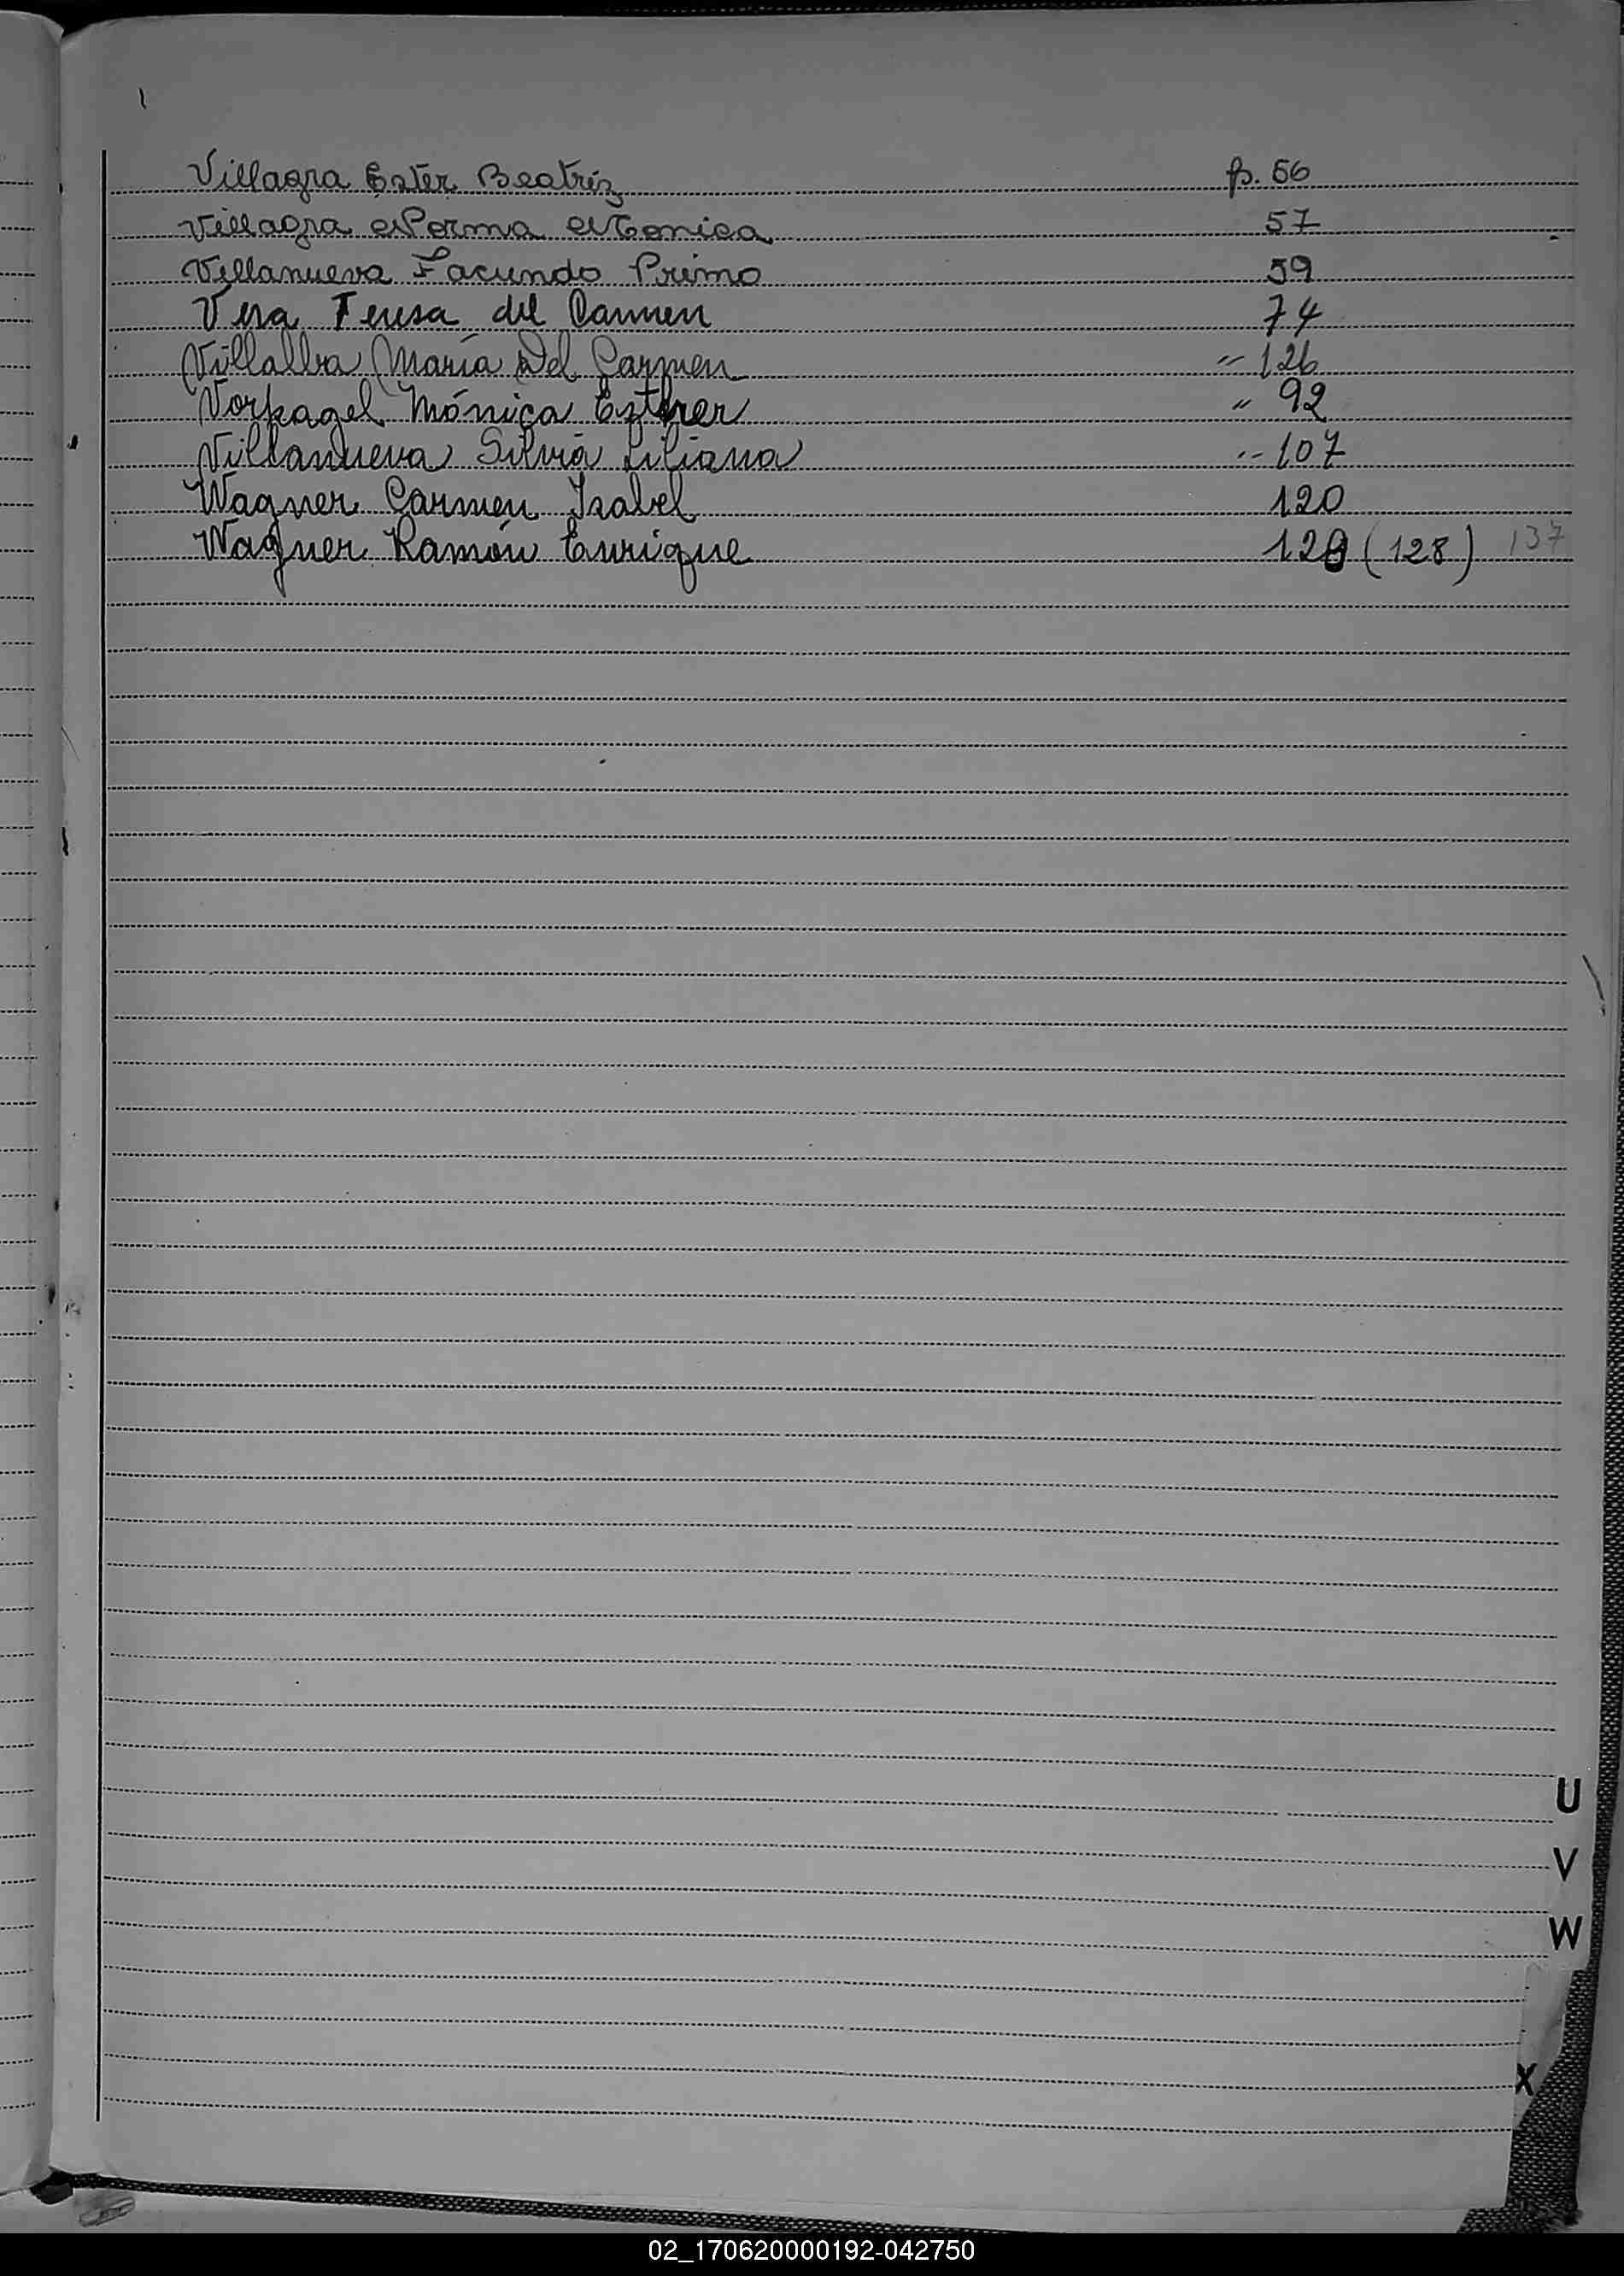 Villagra Ester Beatríz p. 56
Villagra Norma Mónica 57
Villanueva Facundo Primo 59
Vera Teresa del Carmen 74
Villalba María Del Carmen " 126
Vorkagel Mónica Esther " 92
Villanueva Silvia Liliana " 107
Wagner Carmen Isabel 120
Wagner Ramón Enrique 128 (128) 137
U
V
W
X
02_170620000192-042750